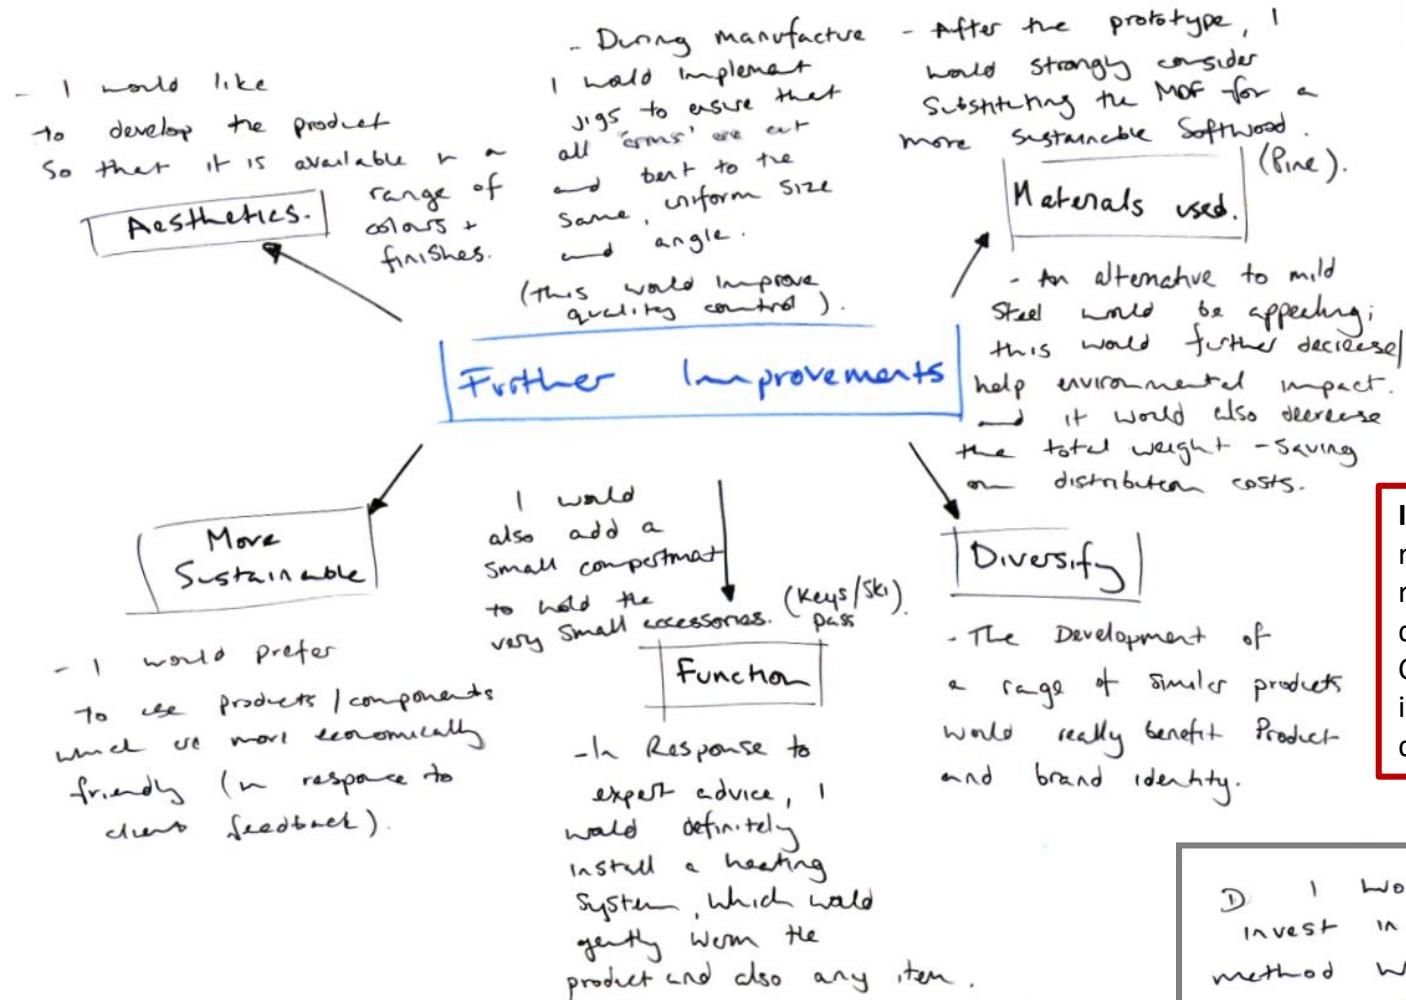 - I would like
to develop the product
so that it is available in a
range of
colours +
finishes.
Aesthetics.
- During manufacture
I would implement
jigs to ensure that
all 'arms' are cut
and bent to the
same, uniform size
and angle.
(this would improve
quality control).
- After the prototype, I
would strongly consider
substituting the MDF for a
more sustainable softwood.
(Pine).
Materials used.
- An alternative to mild
steel would be appealing;
this would further decrease/
help environmental impact.
and it would also decrease
the total weight - saving
on distribution costs.
Further Improvements
More
Sustainable
- I would prefer
to use products/components
which are more economically
friendly (in response to
client feedback).
I would
also add a
small compartment
to hold the
very small accessories. (Keys/Ski
pass).
Function
- In Response to
expert advice, I
would definitely
install a heating
system, which would
gently warm the
product and also any item.
Diversify
- The Development of
a range of similar products
would really benefit Product
and brand identity.
D I
invest in
method